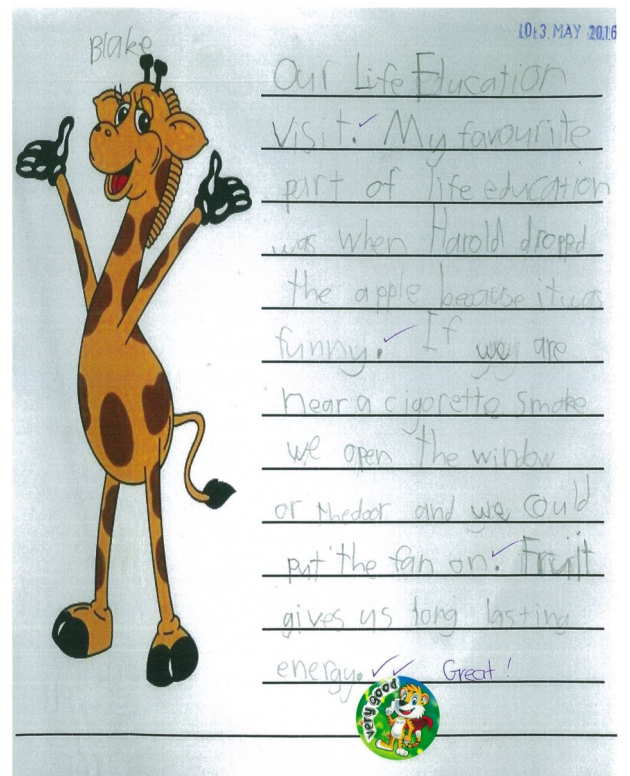 Blake
10:3. MAY 2016
Our Life Education
Visit. My favourite
part of life education
was when Harold dropped
the apple because it was
funny. If we are
near a cigoretto smoke
we open the window
or the door and we could
put the fan on. Fruit
gives us long lasting
energy. Great!
very good